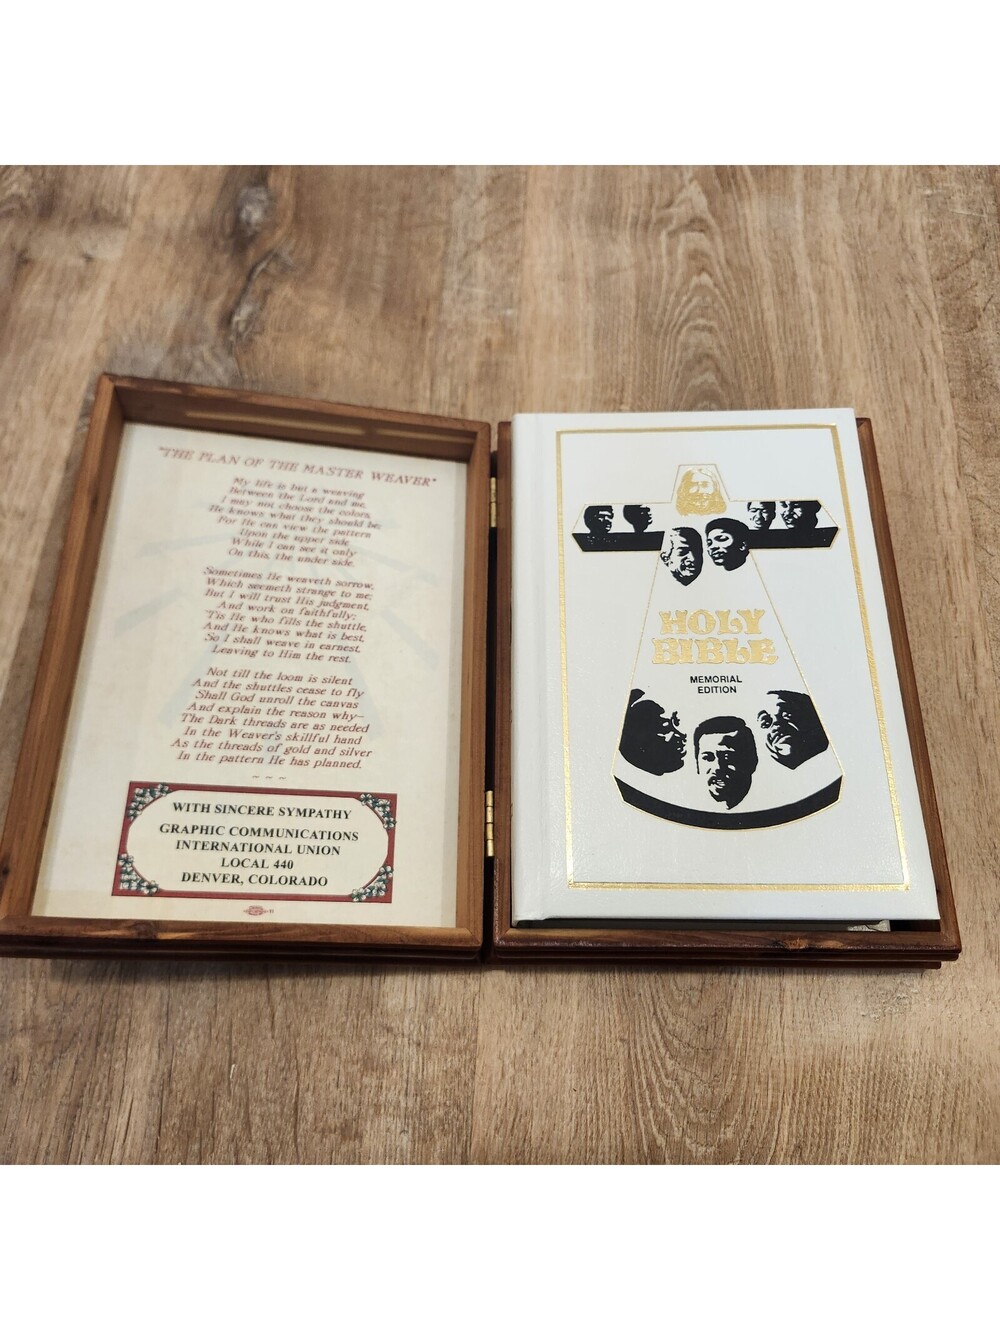 "THE PLAN OF THE MASTER WEAVER"
My life is but a weaving
Between the Lord and me,
I may not choose the colors,
He knows what they should be;
For He can view the pattern
Upon the upper side
While I can see it only
On this, the under side.
Sometimes He weaveth sorrow,
Which seemeth strange to me;
But I will trust His judgment,
And work on faithfully;
'Tis He who fills the shuttle,
And He knows what is best,
So I shall weave in earnest,
Leaving to Him the rest.
Not till the loom is silent
And the shuttles cease to fly
Shall God unroll the canvas
And explain the reason why—
The Dark threads are as needed
In the Weaver's skillful hand
As the threads of gold and silver
In the pattern He has planned.
~ ~ ~
WITH SINCERE SYMPATHY
GRAPHIC COMMUNICATIONS
INTERNATIONAL UNION
LOCAL 440
DENVER, COLORADO
HOLY
BIBLE
MEMORIAL
EDITION